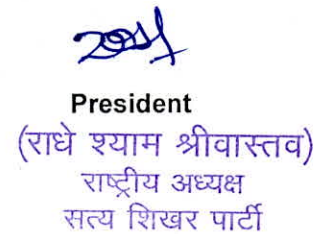 President
(राधे श्याम श्रीवास्तव)
राष्ट्रीय अध्यक्ष
सत्य शिखर पार्टी